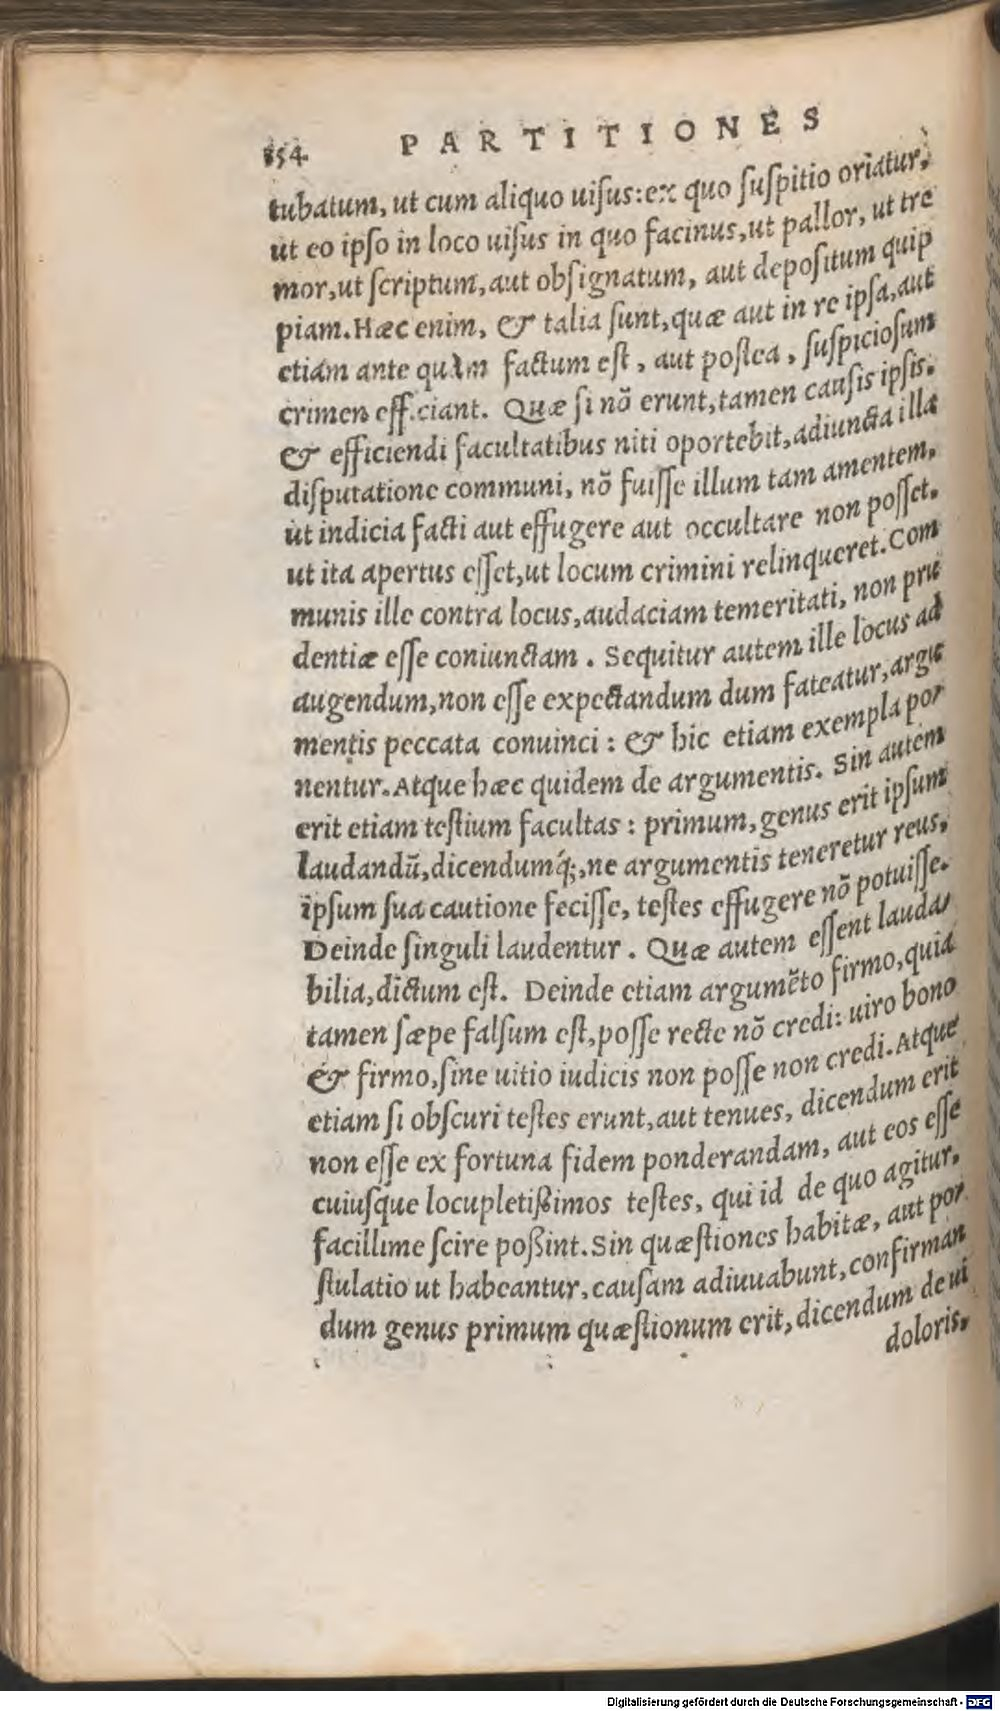 154 PARTITIONES
tubatum, ut cum aliquo uiſus:ex quo ſuſpitio oriatur,
ut eo ipſo in loco uiſus in quo facinus,ut pallor, ut tre
mor,ut ſcriptum,aut obſignatum, aut depoſitum quip
piam.Hæc enim, & talia ſunt,quæ aut in re ipſa,aut
etiam ante quàm factum eſt, aut poſtea, ſuſpicioſum
crimen efficiant. Quæ ſi nõ erunt,tamen cauſis ipſis.
& efficiendi facultatibus niti oportebit,adiuncta illa
diſputatione communi, nõ fuiſſe illum tam amentem,
ut indicia facti aut effugere aut occultare non poſſet.
ut ita apertus eſſet,ut locum crimini relinqueret.Com
munis ille contra locus,audaciam temeritati, non pru
dentiæ eſſe coniunctam. Sequitur autem ille locus ad
augendum,non eſſe expectandum dum fateatur,argu
mentis peccata conuinci: & hic etiam exempla por
nentur.Atque hæc quidem de argumentis. Sin autem
erit etiam teſtium facultas: primum,genus erit ipſum
laudandũ,dicendumq́;,ne argumentis teneretur reus,
ipſum ſua cautione feciſſe, teſtes effugere nõ potuiſſe.
Deinde ſinguli laudentur. Quæ autem eſſent lauda/
bilia,dictum eſt. Deinde etiam argumẽto firmo,quia
tamen ſæpe falſum eſt,poſſe recte nõ credi: uiro bono
& firmo,ſine uitio iudicis non poſſe non credi.Atque
etiam ſi obſcuri teſtes erunt,aut tenues, dicendum erit
non eſſe ex fortuna fidem ponderandam, aut eos eſſe
cuiuſque locupletißimos teſtes, qui id de quo agitur,
facillime ſcire poßint.Sin quæſtiones habitæ, aut por
ſtulatio ut habeantur,cauſam adiuuabunt,confirman
dum genus primum quæſtionum erit,dicendum de ui
doloris,
Digitalisierung gefördert durch die Deutsche Forschungsgemeinschaft - DFG